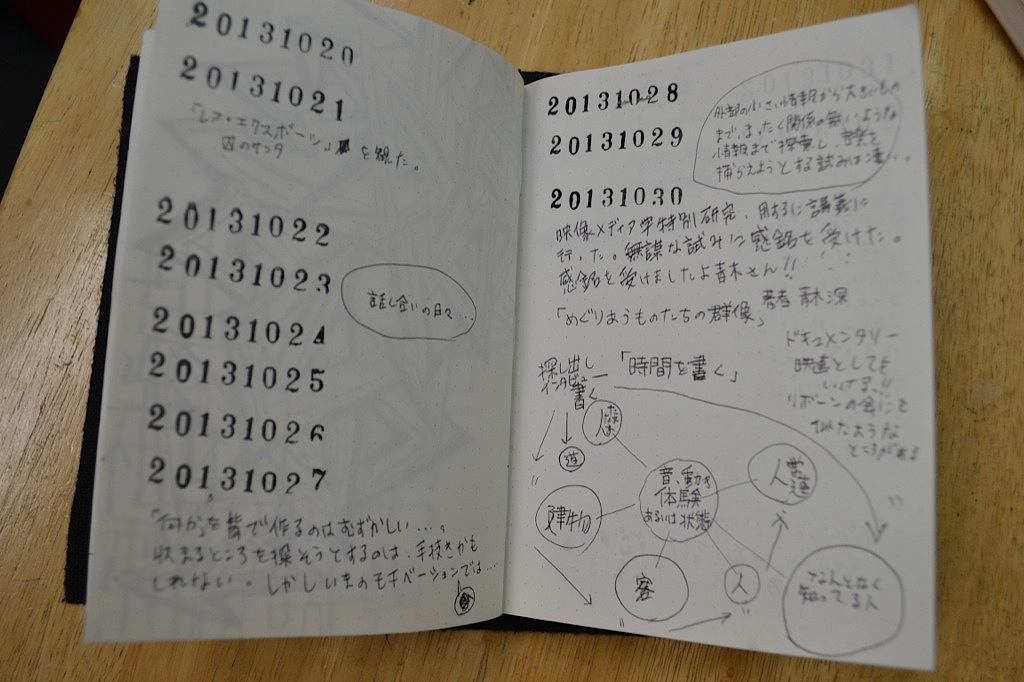 20131020
20131021
「レア・エクスポーツ」 を観た。
囚のサンタ
20131022
20131023
話し合いの日々…
20131024
20131025
20131026
20131027
「何か」を皆で作るのはむずかしい…。
収まるところを探そうとするのは、手抜きかも
しれない。しかしいまのモチベーションでは…
20131028
20131029
外部の小さい情報から大きいもの
まで、まったく関係の無いような
情報まで探索し、音楽を
捕らえようとする試みは凄い。
20131030
映像メディア学特別研究、用するに講義に
行った。無謀な試みに感銘を受けた。
感銘を受けましたよ青木さん!!
「めぐりあうものたちの群像」 著者 青木 深
ドキュメンタリー
映画としても
いける!!
リボーンの会にも
似たような
ところがある
探し出し
インタビュー
書く
「時間を書く」
人
遊
音、動き
体験
あるいは 状態
人
建物
客
人
なんとなく
知ってる人